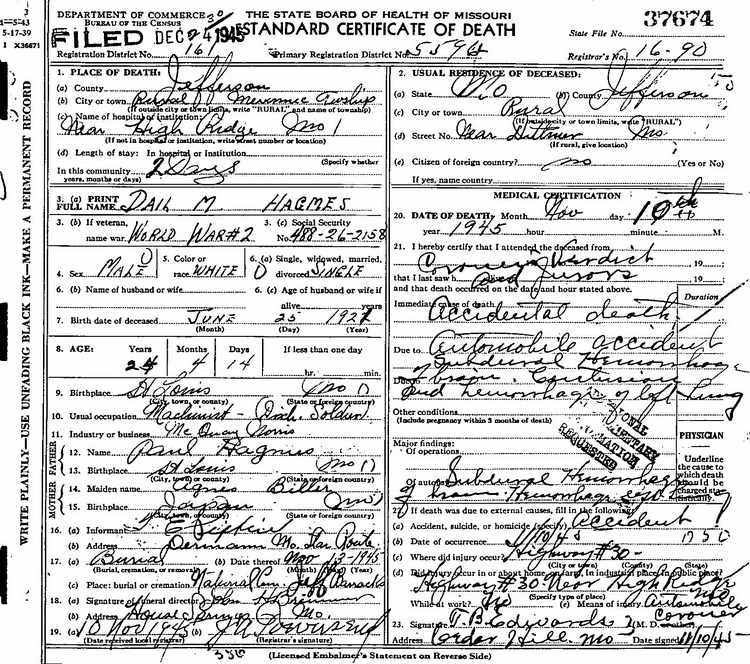 3
1-5-43
5-17-39
1 X36671
WRITE PLAINLY—USE UNFADING BLACK INK—MAKE A PERMANENT RECORD
DEPARTMENT OF COMMERCE
BUREAU OF THE CENSUS
THE STATE BOARD OF HEALTH OF MISSOURI
STANDARD CERTIFICATE OF DEATH
37674
State File No.
FILED DEC 24 1945
Registration District No. 161
Primary Registration District No. 5594
Registrar's No. 16-90
1. PLACE OF DEATH:
(a) County Jefferson
(b) City or town Rural Meramec Township
(If outside city or town limits, write "RURAL" and name of township)
(c) Name of hospital or institution:
Near High Ridge Mo
(If not in hospital or institution, write street number or location)
(d) Length of stay: In hospital or institution
(Specify whether
In this community 2 Days
years, months or days)
2. USUAL RESIDENCE OF DECEASED:
(a) State Mo (b) County Jefferson
(c) City or town Rural
(If outside city or town limits, write "RURAL")
(d) Street No. Near Dittmer Mo.
(If rural, give location)
(e) Citizen of foreign country? no (Yes or No)
If yes, name country
3. (a) PRINT
FULL NAME DAIL M HAGNES
3. (b) If veteran,
name war WORLD WAR #2
3. (c) Social Security
No. 488-26-2158
4. Sex MALE
5. Color or
race WHITE
6. (a) Single, widowed, married,
divorced SINGLE
6. (b) Name of husband or wife
6. (c) Age of husband or wife if
alive years
7. Birth date of deceased JUNE 25 1921
(Month) (Day) (Year)
8. AGE: Years Months Days If less than one day
24 4 14 hr. min.
9. Birthplace St Louis Mo
(City, town, or county) (State or foreign country)
10. Usual occupation Machinist - Disch. Soldier
11. Industry or business Mc Quay Norris
FATHER
12. Name Paul Hagnes
13. Birthplace St Louis Mo
(City, town, or county) (State or foreign country)
MOTHER
14. Maiden name Agnes
15. Birthplace Mo
(City, town, or county) (State or foreign country)
16. (a) Informant
(b) Address Mo. Star Route
17. (a) Burial (b) Date thereof Nov 13-1945
(Burial, cremation, or removal) (Month) (Day) (Year)
(c) Place: burial or cremation National Cem. Jeff Barracks
18. (a) Signature of funeral director
(b) Address House Springs Mo.
19. (a) (b)
(Date received local registrar) (Registrar's signature)
MEDICAL CERTIFICATION
20. DATE OF DEATH: Month Nov day 10th
year 1945 hour minute M.
21. I hereby certify that I attended the deceased from
Coroner Verdict 19
and Jurors 19
that I last saw h alive on
and that death occurred on the date and hour stated above.
Duration
Immediate cause of death
Accidental death
Due to Automobile accident
Subdural Hemorrhage
Due to of brain. Contusion
and hemorrhage of left lung
Other conditions
(Include pregnancy within 3 months of death)
REQUESTED
Major findings:
Of operations
PHYSICIAN
Underline
the cause to
which death
should be
charged sta-
tistically.
Of autopsy Subdural Hemorrhage
of brain Hemorrhage
22. If death was due to external causes, fill in the following:
(a) Accident, suicide, or homicide (specify) Accident
(b) Date of occurrence 11/10/45
(c) Where did injury occur? Highway #30-
(City or town) (County) (State)
(d) Did injury occur in or about home, on farm, in industrial place, in public place?
Highway #30 Near High Ridge
(Specify type of place)
While at work? No (e) Means of injury Automobile
23. Signature T. B. Edwards Coroner
(M. D. or other)
Address Cedar Hill. Mo Date signed 11/10/45
(Licensed Embalmer's Statement on Reverse Side)